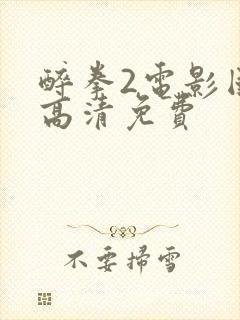 醉拳2電影
高清免費
不要掃雪